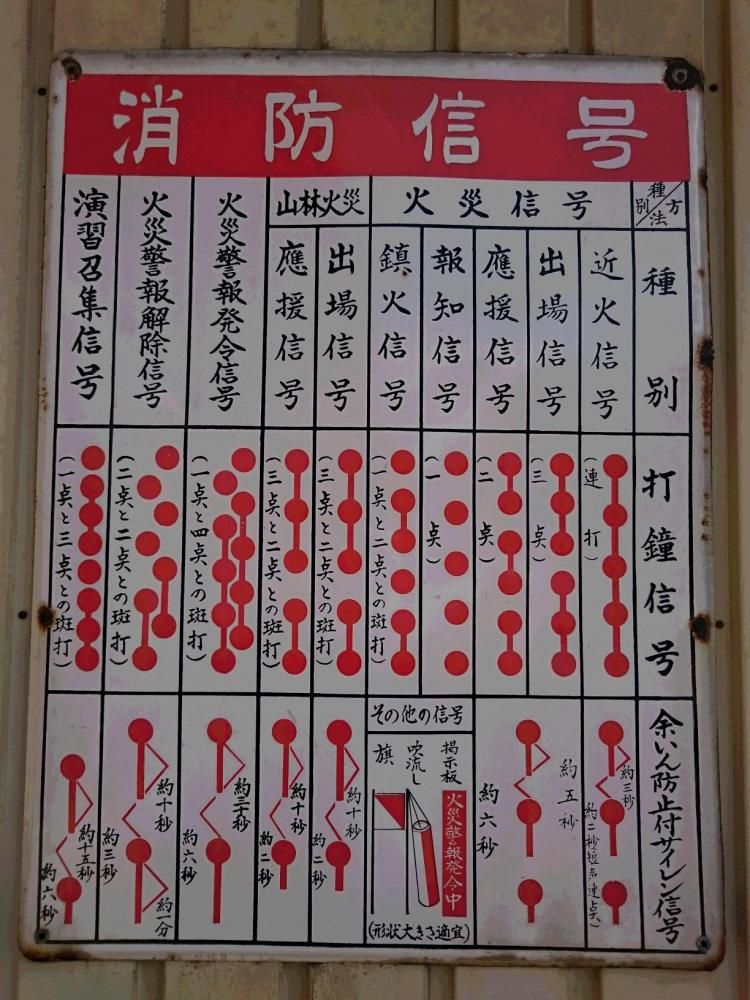 消防信号
種別 方法
火災信号
山林火災
種別
近火信号
出場信号
應援信号
報知信号
鎮火信号
出場信号
應援信号
火災警報発令信号
火災警報解除信号
演習召集信号
打鐘信号
(連打)
(三点)
(二点)
(一点)
(一点と二点との斑打)
(三点と二点との斑打)
(三点と二点との斑打)
(一点と四点との斑打)
(二点と二点との斑打)
(一点と三点との斑打)
余いん防止付サイレン信号
約三秒
約二秒短声連点)
約五秒
約六秒
その他の信号
掲示板
吹流し
旗
火災警報発令中
(形状大きさ適宜)
約十秒
約二秒
約十秒
約二秒
約三十秒
約六秒
約十秒
約三秒
約一分
約十五秒
約六秒